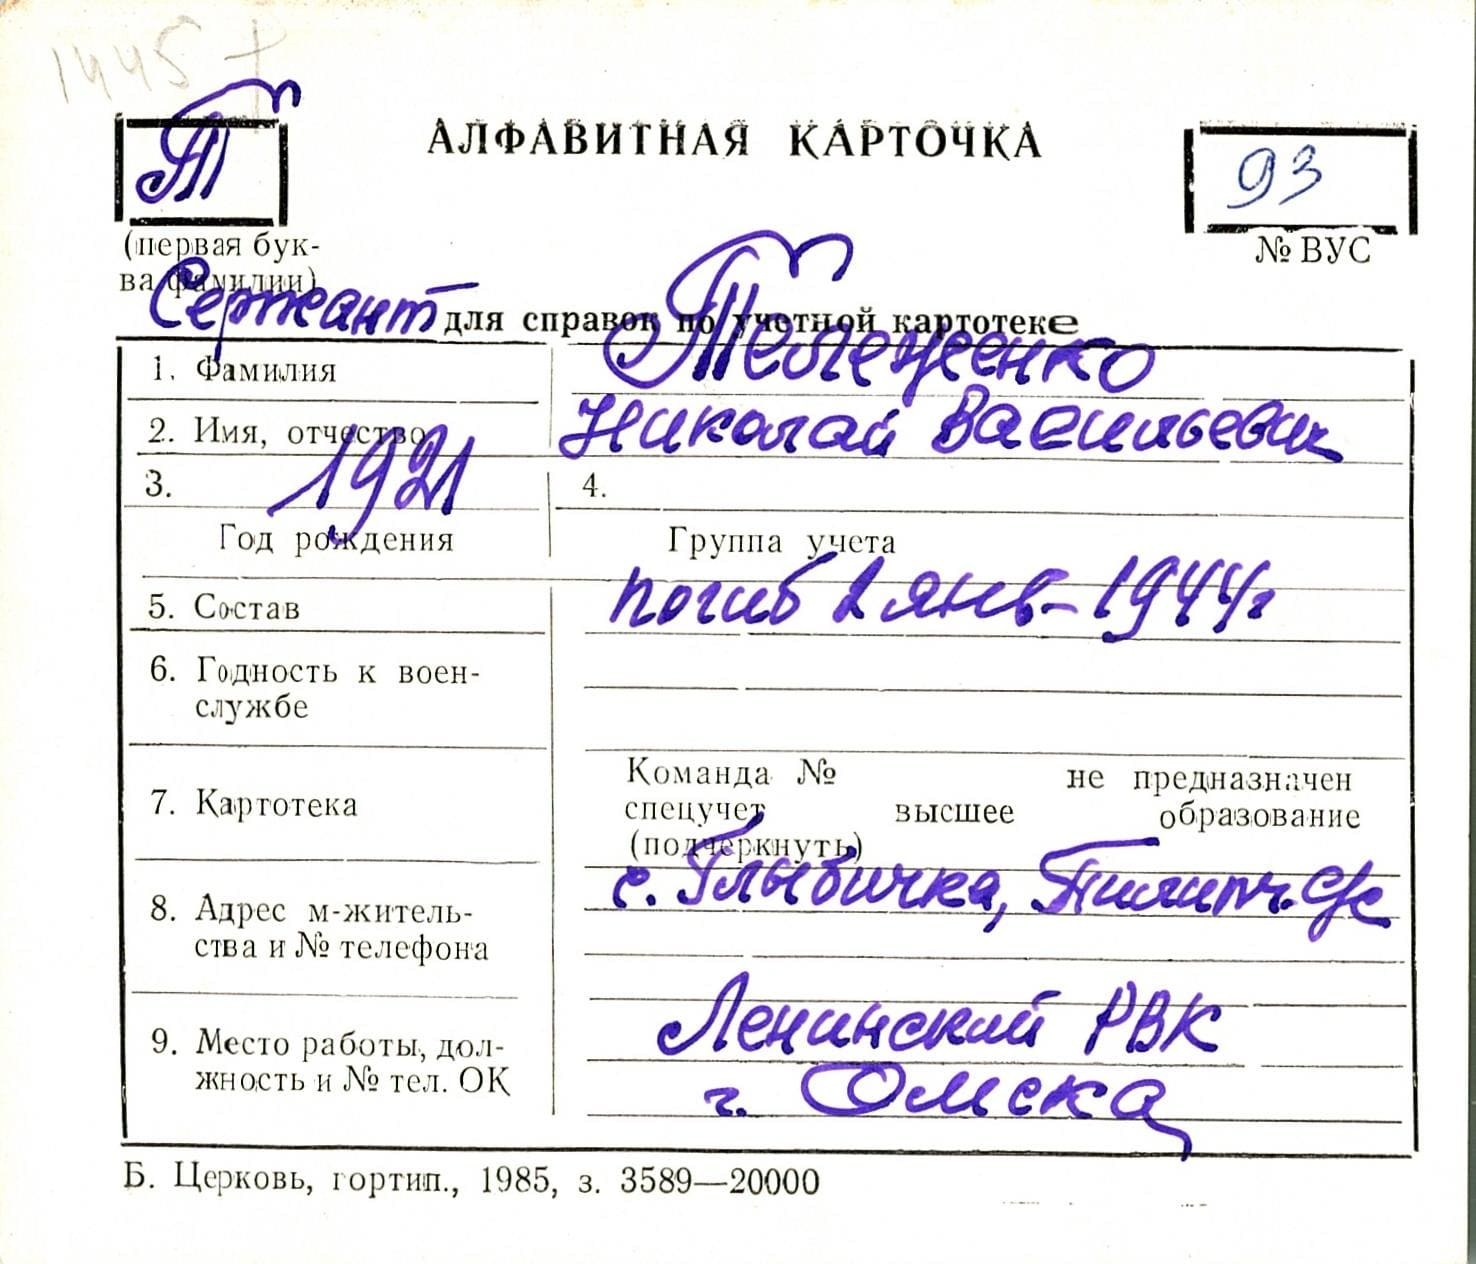 1445 †
Т
АЛФАВИТНАЯ КАРТОЧКА
93
(первая бук-
ва фамилии)
№ ВУС
Сержант
для справок по учетной картотеке
1. Фамилия
2. Имя, отчество
Николай Васильевич
3. 1921
4.
Год рождения
Группа учета
5. Состав
погиб 2 янв- 1944г
6. Годность к воен-
службе
7. Картотека
Команда № не предназначен
спецучет высшее образование
(подчеркнуть)
8. Адрес м-житель-
ства и № телефона
с. Глыбичка, Пилипч. с/с
9. Место работы, дол-
жность и № тел. ОК
Ленинский РВК
г. Омска
Б. Церковь, гортип., 1985, з. 3589—20000